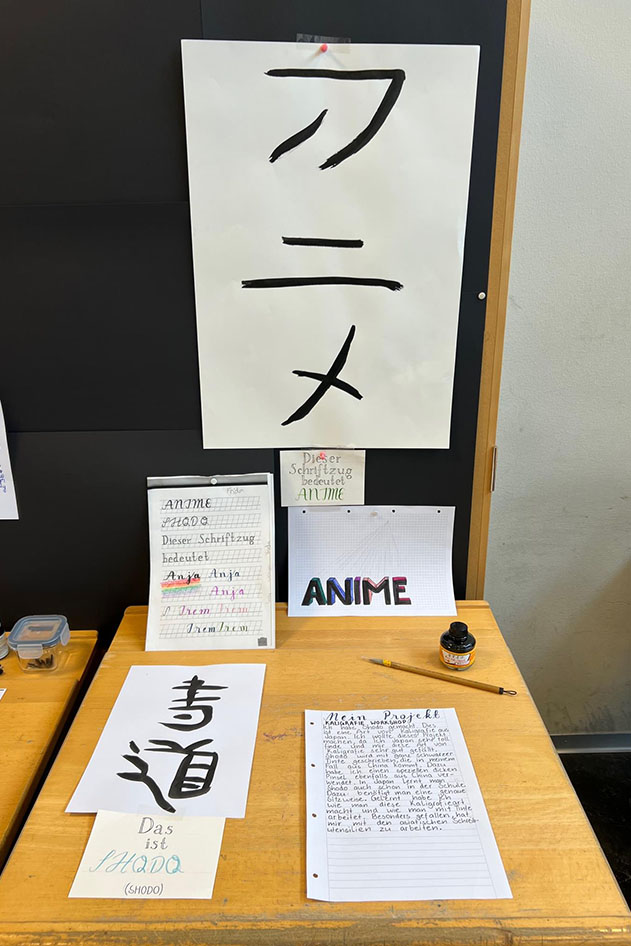 アニメ
Dieser
Schriftzug
bedeutet
ANIME
ANIME
SHODO
Dieser Schriftzug
bedeutet
Anja Anja
Anja
Irem Irem
IremIrem
ANIME
書道
Das
ist
SHODO
(SHODO)
Mein Projekt
KALIGRAFIE WORKSHOP
Ich habe Shodo gemacht. Das
ist eine Art von Kaligrafie aus
Japan. Ich wollte dieses Projekt
machen, da ich Japan sehr toll
finde und mir diese Art von
Kaligrafie sehr gut gefällt.
Shodo wird mit ganz schwarzer
Tinte geschrieben, die in meinem
Fall aus China kommt. Dazu
habe ich einen speziellen dicken
Pinsel ebenfalls aus China ver-
wendet. In Japan lernt man
Shodo auch schon in der Schule.
Dazu benötigt man eine genaue
Sitzweise. Gelernt habe ich
wie man diese Kaligrafieart
macht und wie man mit Tinte
arbeitet. Besonders gefallen hat
mir mit den asiatischen Schreib-
utensilien zu arbeiten.